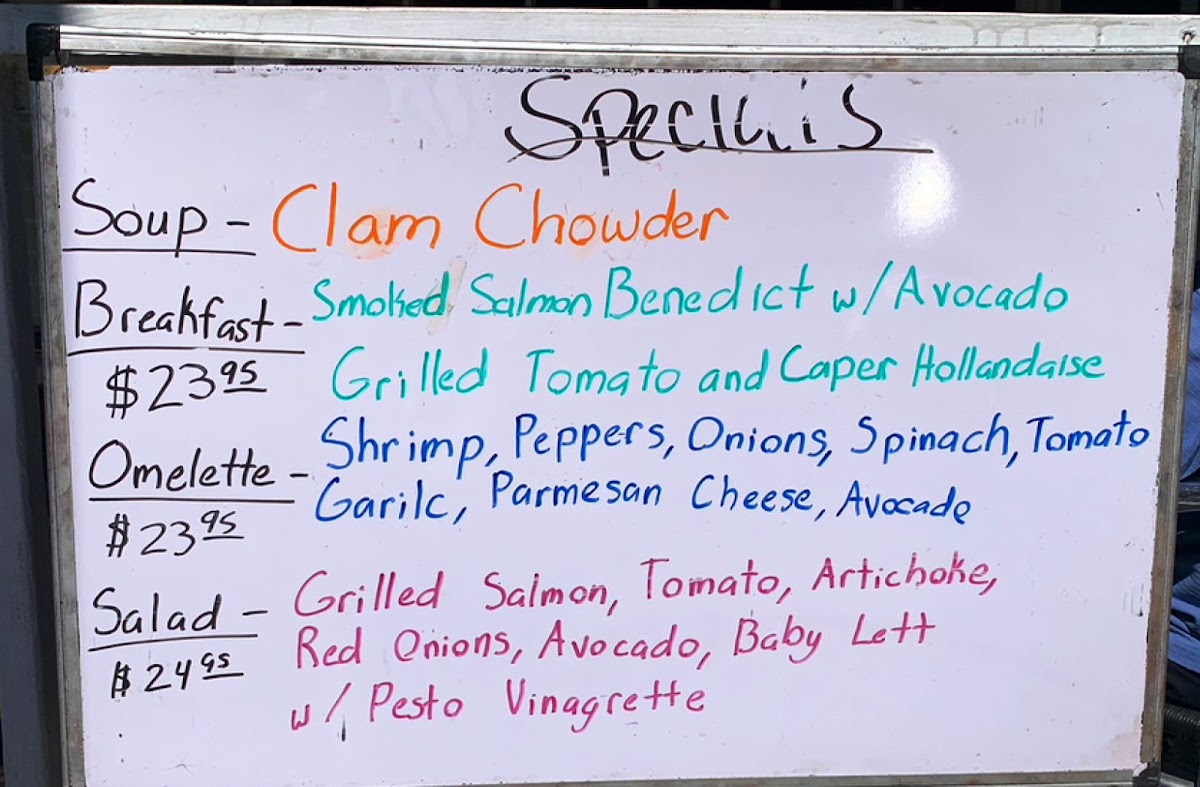 Specials
Soup - Clam Chowder
Breakfast - Smoked Salmon Benedict w/ Avocado
$23.95 Grilled Tomato and Caper Hollandaise
Omelette - Shrimp, Peppers, Onions, Spinach, Tomato
$23.95 Garilc, Parmesan Cheese, Avocade
Salad - Grilled Salmon, Tomato, Artichoke,
$24.95 Red Onions, Avocado, Baby Lett
w/ Pesto Vinagrette